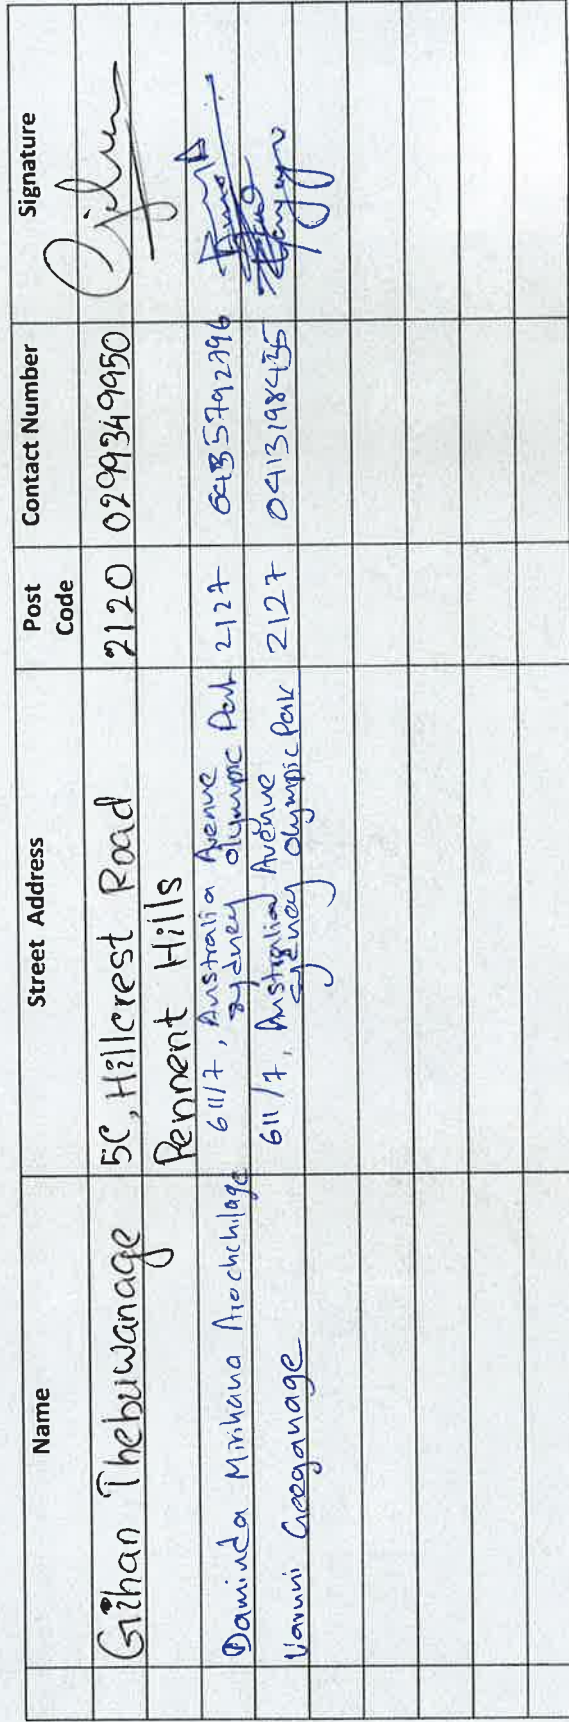 Name Street Address Post Code Contact Number Signature
Gihan Thebuwanage 5C, Hillcrest Road 2120 0299349950
Pennent Hills
Daminda Mirihana Arachchilage 611/7, Australia Avenue
Sydney Olympic Park 2127
Varuni Geeganage 611/7, Australia Avenue
Sydney Olympic Park 2127 0413198435